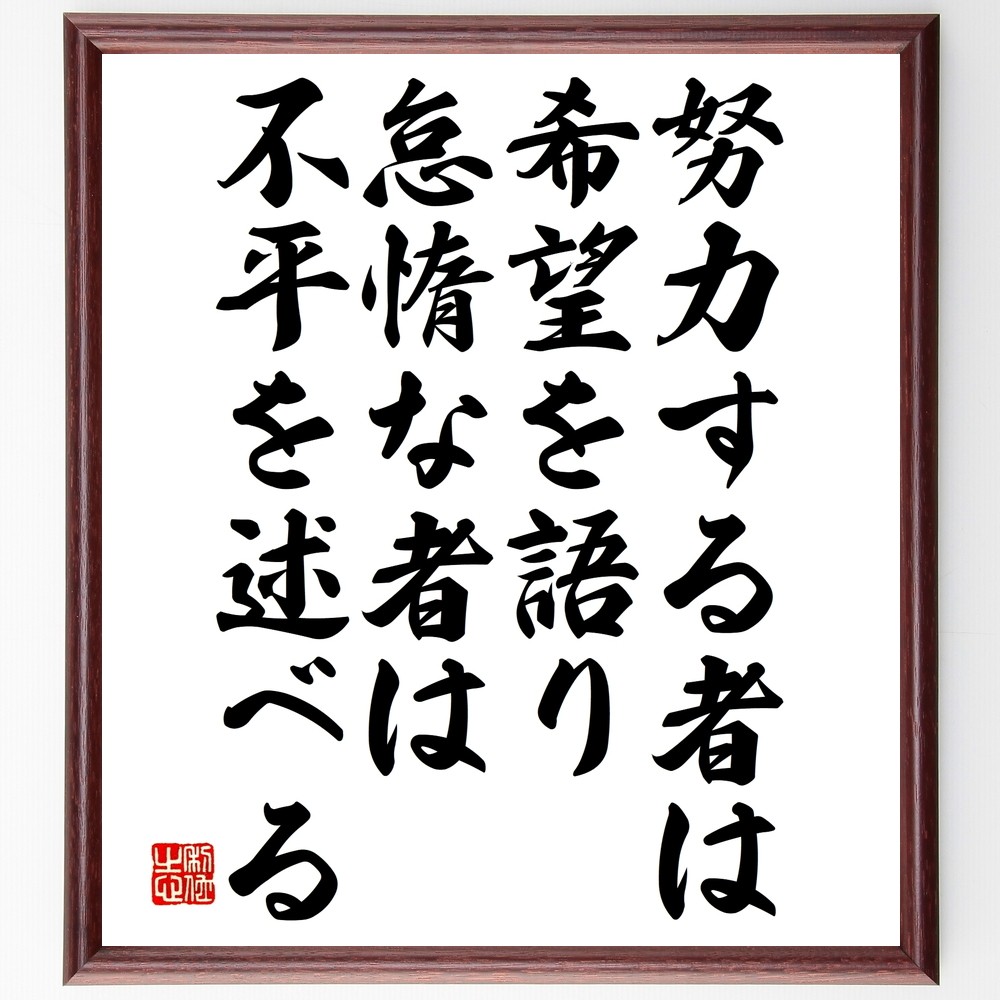 努力する者は
希望を語り
怠惰な者は
不平を述べる